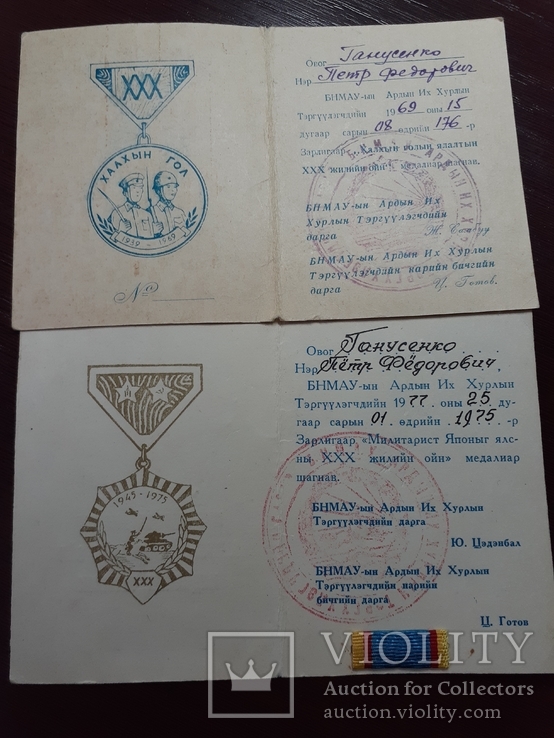 XXX
ХАЛХЫН ГОЛ
1939 - 1969
№
Овог Ганусенко
Нэр Петр Федорович
БНМАУ-ын Ардын Их Хурлын
Тэргүүлэгчдийн 1969 оны 15
дугаар сарын 08 өдрийн 176-р
Зарлигаар „Халхын голын ялалтын
XXX жилийн ойн" медалиар шагнав.
БНМАУ-ын Ардын Их
Хурлын Тэргүүлэгчдийн
дарга Ж. Самбуу
БНМАУ-ын Ардын Их Хурлын
Тэргүүлэгчдийн нарийн бичгийн
дарга Ц. Готов.
1945-1975
XXX
Овог Ганусенко
Нэр Пётр Фёдорович.
БНМАУ-ын Ардын Их Хурлын
Тэргүүлэгчдийн 1977 оны 25 ду-
гаар сарын 01. өдрийн 1975. -р
Зарлигаар «Милитарист Японыг ялс-
ны XXX жилийн ойн» медалиар
шагнав.
БНМАУ-ын Ардын Их Хурлын
Тэргүүлэгчдийн дарга
Ю. Цэдэнбал
БНМАУ-ын Ардын Их Хурлын
Тэргүүлэгчдийн нарийн
бичгийн дарга
Ц. Готов
VIOLITY
Auction for Collectors
auction.violity.com